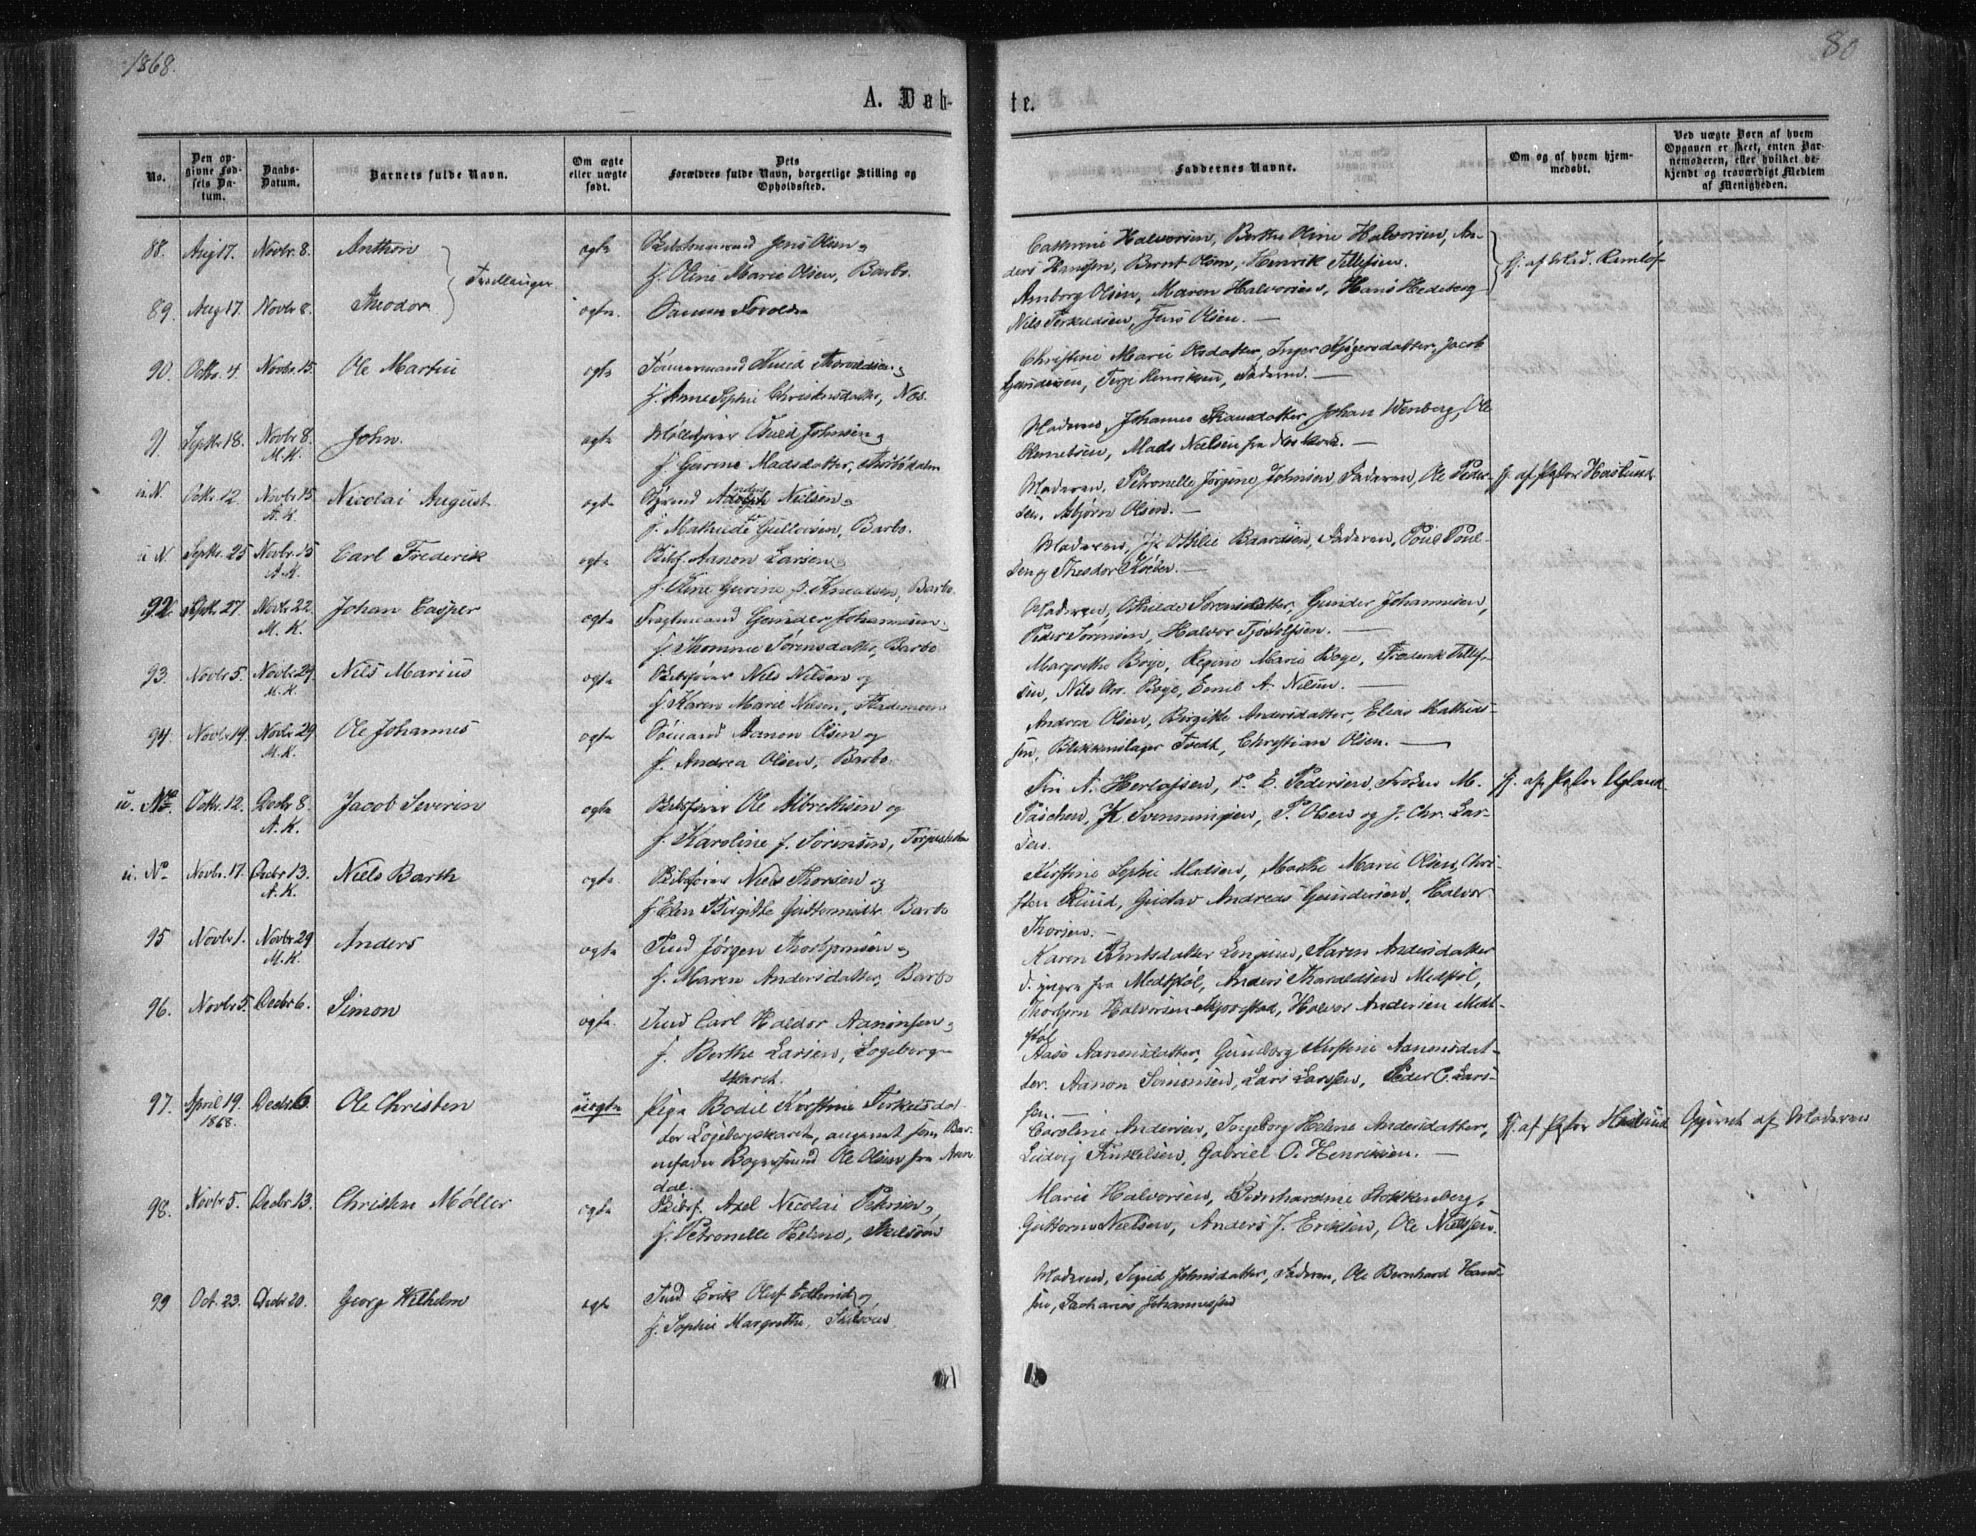 1868.
80
A. Døb-
te.
No.
Den op-
givne Fød-
sels Da-
tum.
Daabs-
Datum.
Barnets fulde Navn.
Om ægte
eller uægte
født.
Dets
Forældres fulde Navn, borgerlige Stilling og
Opholdssted.
Faddernes Navne.
Om og af hvem hjem-
medøbt.
Ved uægte Børn af hvem
Opgaven er skeet, enten Bar-
nemoderen, eller hvilket be-
kjendt og troværdigt Medlem
af Menigheden.
88. Aug 17. Novbr. 8. Anthon ægte Jens Olsen og
f. Oline Marie Olsen, Barbo.
Cathrine Halvorsen, Berthe Oline Halvorsen, An-
ders Hansen, Bernt Olsen, Henrik Tellefsen.
Tvillinger
hj. af Mad. Ramløf
89. Aug 17. Novbr 8. Theodor ægte. Samme Foreldre
Anborg Olsen, Maren Halvorsen, Hans Hedeberg
Nils Terkeldsen, Jens Olsen. —
90. Octbr. 4. Novbr. 15. Ole Martin ægte Tømmermand Knud Thorvaldsen og
f. Anne Sophie Christensdatter, Næs.
Christine Marie Olsdatter, Inger datter, Jacob
Gundersen, Terje Henriksen, Faderen. —
91. Septbr. 18. Novbr. 8.
M. K. John. ægte Knud Johnsen og
f. Gurine Madsdatter,
Moderen, Johanne datter, Johan Wenberg, Ole
Mads Nielsen fra —
u. N. Octbr. 12. Novbr. 15.
A. K. Nicolai August ægte Nielsen og
f. Mathilde Gullovsen, Barbo.
Moderen, Petronelle Jørgine Johnsen, Faderen, Ole Peder-
sen, Asbjørn Olsen. —
hj. af Pastor Haslund
u. N. Septbr. 25 Novbr. 15
A. K. Carl Frederik ægte Aanon Larsen og
f. Oline Gurine f. Knudsen, Barbo.
Moderen, Othilie Baardsen, Faderen, Poul Poul-
sen og Theodor Køber. —
92. Septbr. 27. Novbr 22.
M. K. Johan Casper ægte Gunder Johannesen og
f. Thomine Sørensdatter, Barbo
Moderen, Sørensdatter, Gunder Johannesen,
Peder Sørensen, Halvor Tjødolfsen. —
93. Novbr 5. Novbr 29
M. K. Nils Marius ægte Skibsfører Nils Nilsen og
f. Karen Marie Nilsen,
Margrethe Boye, Regine Marie Boye, Frederik Tellef-
sen, Nils Chr. Boye, Emil A. Nilsen. —
94. Novbr 19. Novbr 29
M. K. Ole Johannes ægte Sømand Aanon Olsen og
f. Andrea Olsen, Barbo
Andrea Olsen, Birgitte Andersdatter, Elias Mathias-
sen, Blikkenslager Tvedt, Christian Olsen. —
u. No. Octbr. 12. Decbr 8.
A. K. Jacob Severin ægte Skibsfører Ole Albrethsen og
f. Karoline f. Sørensen,
Fru A. Herlofsen, do E. Pedersen, Frøken M.
K Svenningsen, P. Olsen og J. Chr. Lar-
sen.
hj. af Pastor Ugland.
u. No Novbr. 17. Decbr 13.
A. K. Niels Barth ægte Skibsfører Niels Thorsen og
f. Elen Birgitte Guttormsdtr. Barbo
Kirstine Sophie Madsen, Marthe Marie Olsen, Chri-
sten Ruud, Gustav Andreas Gundersen, Halvor
Thorsen. —
95 Novbr 1. Novbr 29
M. K. Anders ægte Jørgen Thorbjørnsen og
f. Maren Andersdatter, Barbo
Karen datter Karen Andersdatter
d. yngre fra Anders Tharaldsen
Thorbjørn Halvorsen Halvor Andersen
96. Novbr 5. Decbr 6. Simon ægte. Carl Haldor Aanonsen og
f. Berthe Larsen, Logeberg-
skaret.
Aase Aanonsdatter, Gunborg Kirstine Aanonsdat-
ter, Aanon Simonsen, Lars Larssen, Peder C. Lars-
sen. —
97. April 19.
1868. Decbr 6. Ole Christen uægte Pige Bodil Kirstine Terkelsdat-
ter Logebergskaret, angivet som Bar-
nefader Ole Olsen fra Aren-
dal.
Caroline Andersen, Ingeborg Helene Andersdatter,
Ludvig Terkelsen, Gabriel O. Henriksen. —
hj. af Pastor Haslund
Opgivet af Moderen
98. Novbr 5. Decbr 13. Christen Møller ægte Skibsf. Axel Nicolai Petersen,
f. Petronelle Helene, Skilsøen
Marie Halvorsen, Bernhardine Stokkenberg,
Guttorm Nielsen, Anders J. Eriksen, Ole Nielsen.
99 Oct. 23. Decbr 20. Georg Wilhelm ægte Erik Oluf Edlund og
f. Sophie Margrethe, Skilsøen.
Moderen, Sigrid Johnsdatter, Faderen, Ole Bernhard Han-
sen, Zacharias Johannessen